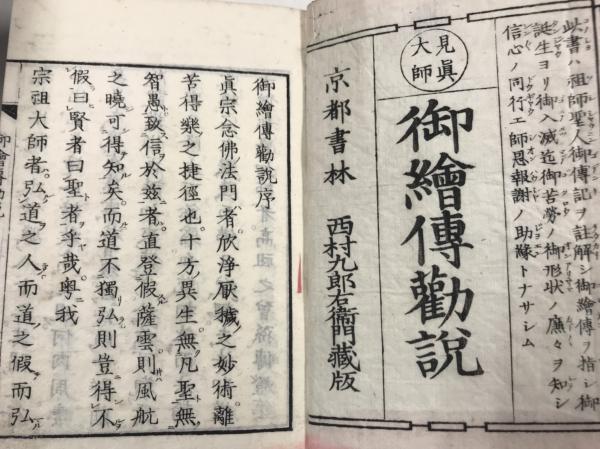 此書ハ祖師聖人御傳記ヲ註解シ御繪傳ヲ指シ御
誕生ヨリ御入滅迄御苦勞ノ御形狀ノ廉々ヲ知シ
信心ノ同行エ師恩報謝ノ助緣トナサシム
見眞
大師
御繪傳勸說
京都書林 西村九郎右衞門藏版
御繪傳勸說序
眞宗念佛法門者欣淨厭穢之妙術離
苦得樂之捷徑也。十方異生無凡聖無
智愚致信於玆者直登假薩雲則風航
之曉可得知矣。而道不獨弘則豈得不
假曰賢者曰聖者乎哉。粤我
宗祖大師者弘道之人而道之假而弘